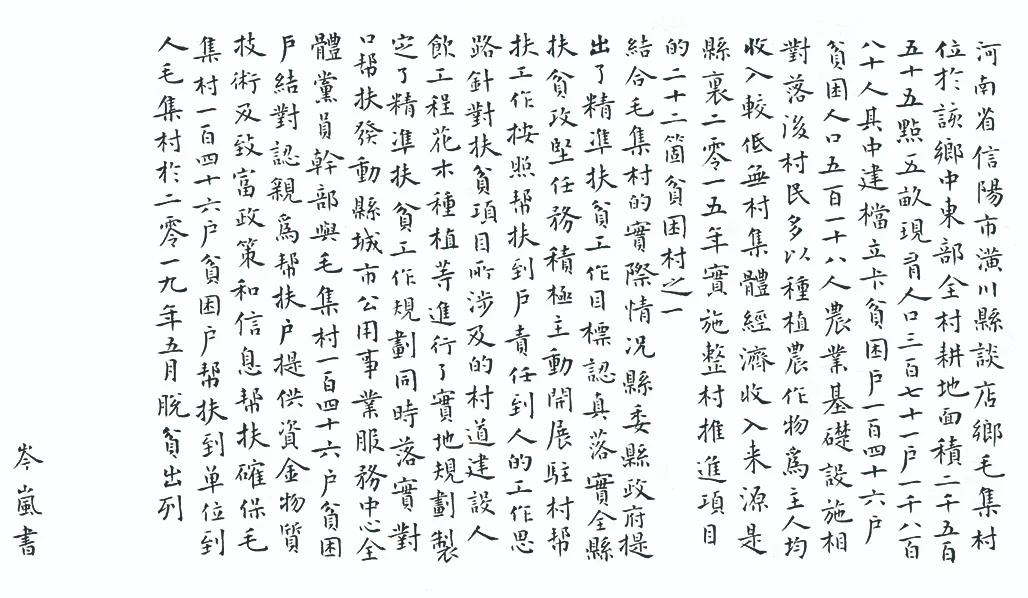 河南省信陽市潢川縣談店鄉毛集村
位於該鄉中東部全村耕地面積二千五百
五十五點五畝現有人口三百七十一戶一千八百
八十人其中建檔立卡貧困戶一百四十六戶
貧困人口五百一十八人農業基礎設施相
對落後村民多以種植農作物爲主人均
收入較低無村集體經濟收入来源是
縣裏二零一五年實施整村推進項目
的二十二箇貧困村之一
結合毛集村的實際情况縣委縣政府提
出了精準扶貧工作目標認真落實全縣
扶貧攻堅任務積極主動開展駐村幫
扶工作按照帮扶到戶責任到人的工作思
路針對扶貧項目所涉及的村道建設人
飲工程花木種植等進行了實地規劃製
定了精準扶貧工作規劃同時落實對
口帮扶發動縣城市公用事業服務中心全
體黨員幹部與毛集村一百四十六戶貧困
戶結對認親爲帮扶戶提供資金物質
技術及致富政策和信息帮扶確保毛
集村一百四十六戶貧困戶帮扶到單位到
人毛集村於二零一九年五月脫貧出列
岑嵐書